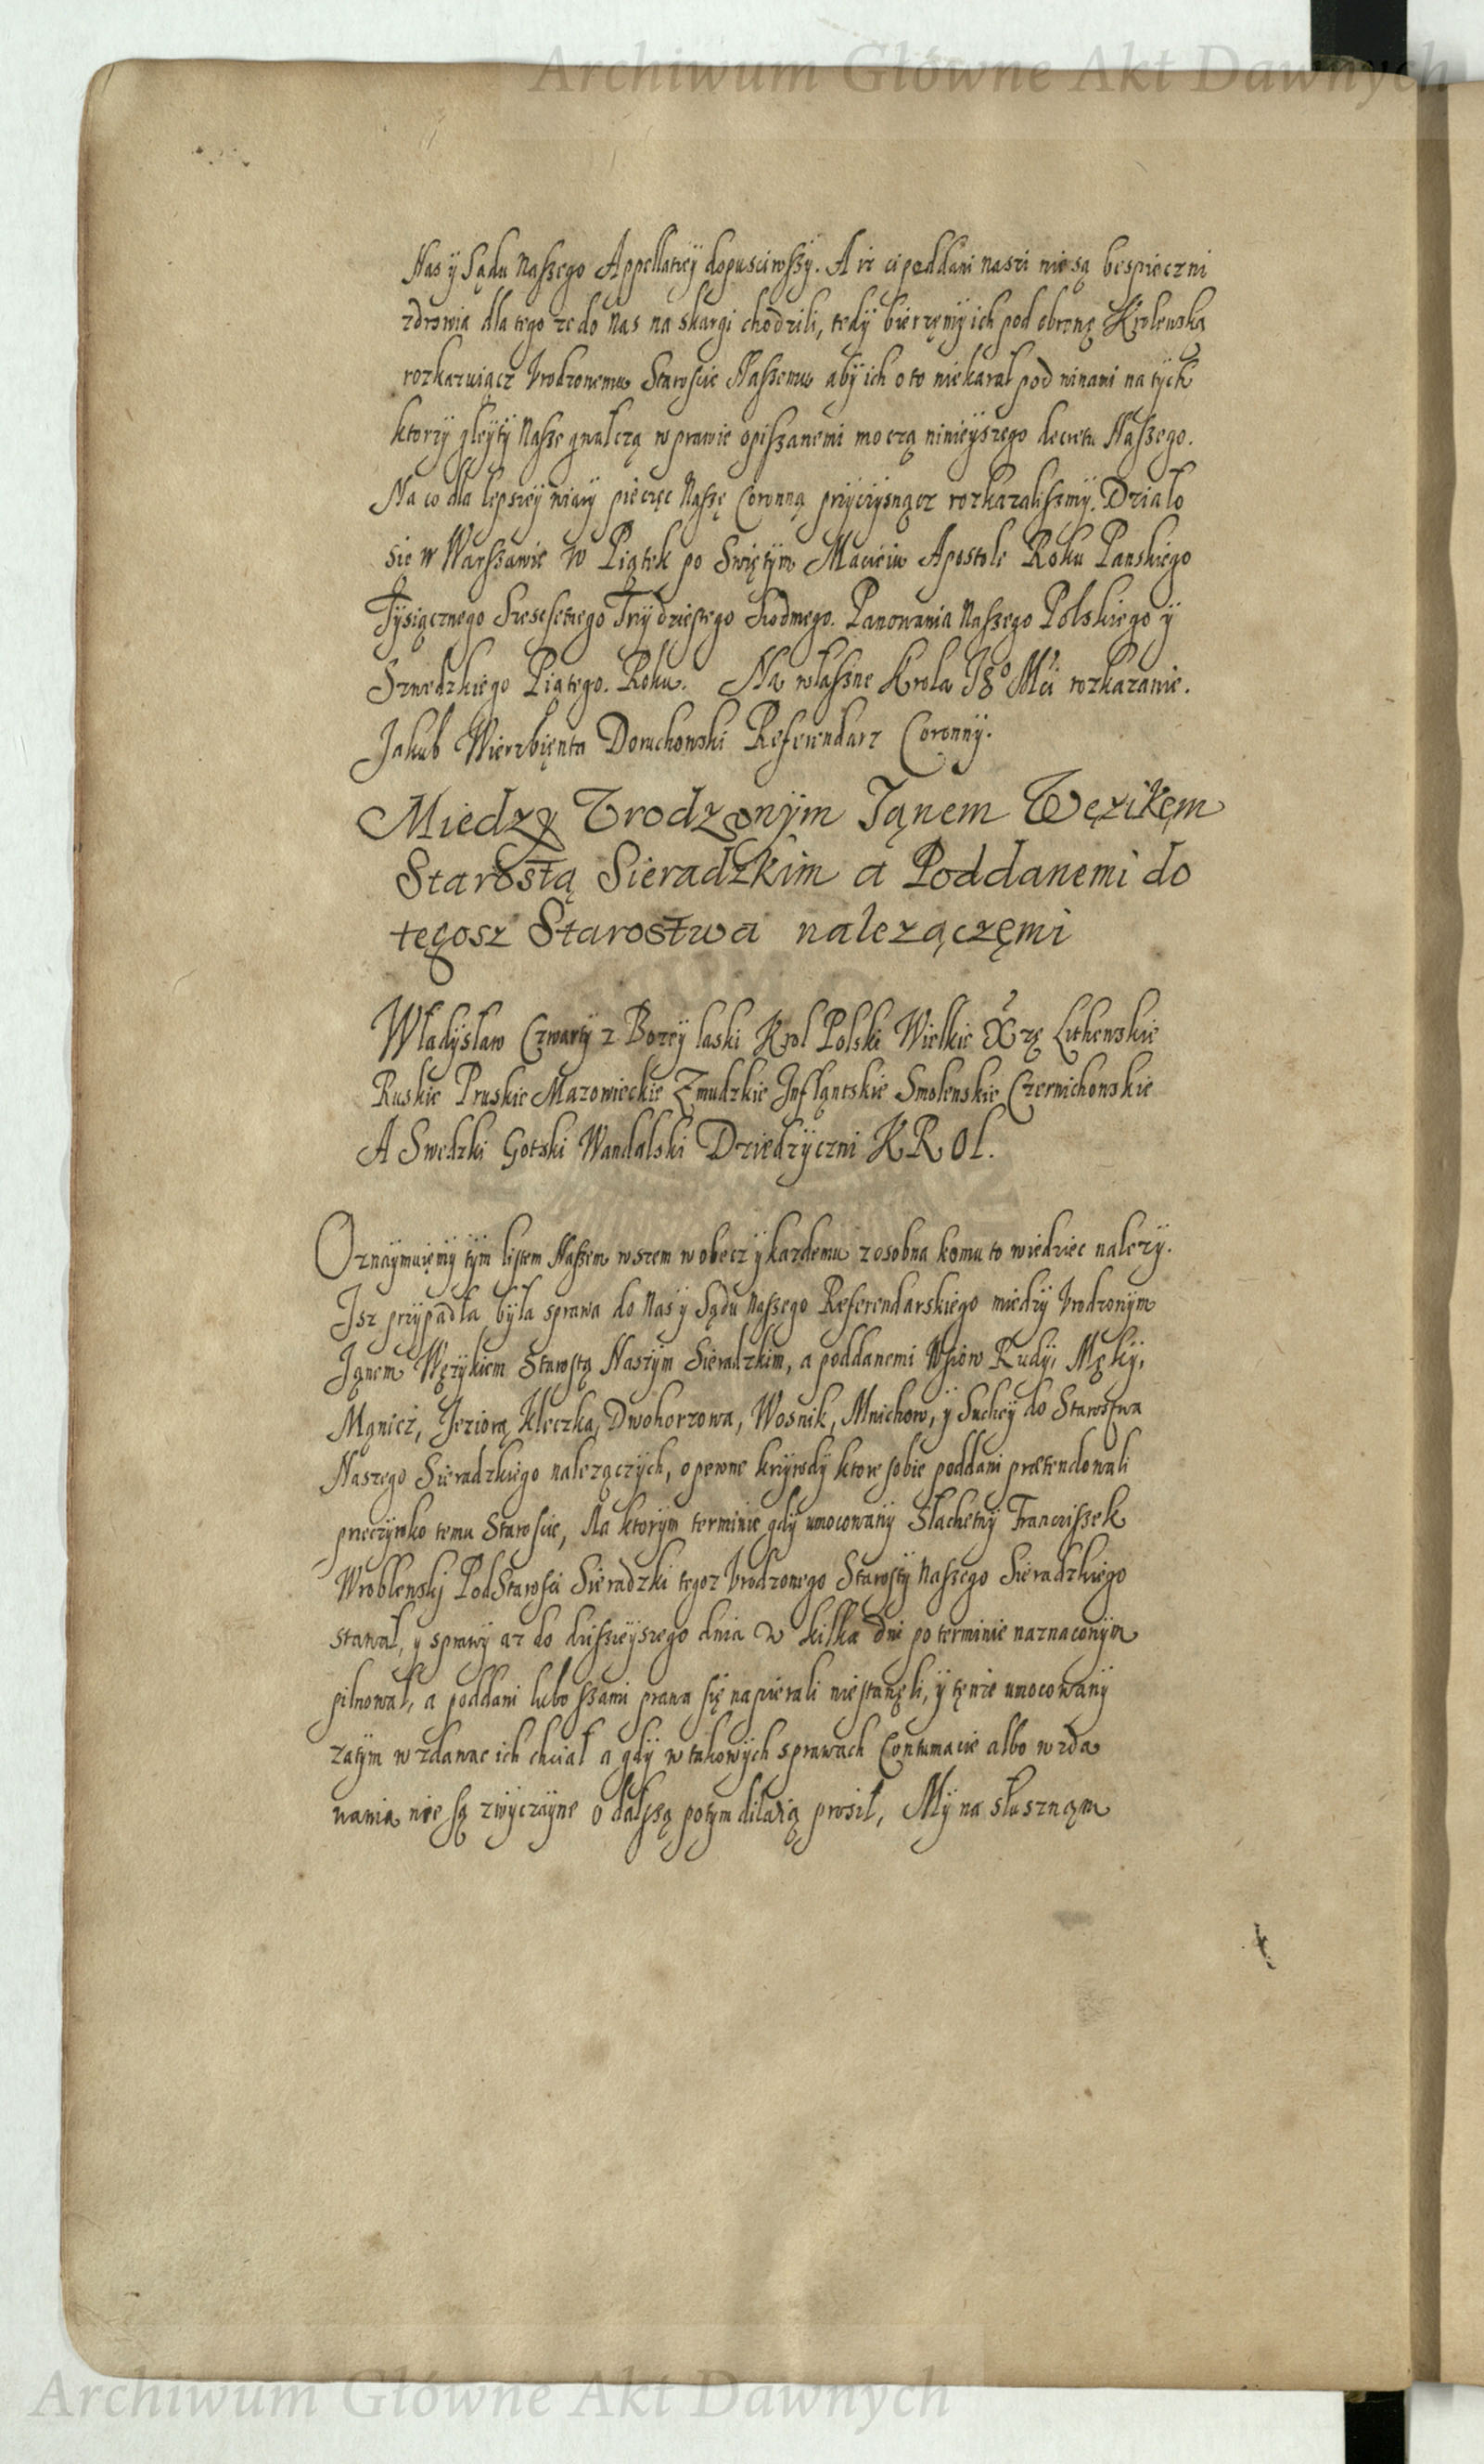 Archiwum Główne Akt Dawnych
Nas ÿ Sądu Naszego Appellatieÿ dopusciwszy. A iz ci poddani naszi nie są bespieczni
zdrowia dla tego ze do Nas na skargi chodzili, tedÿ bierzęmÿ ich pod obronę Krolewską
rozkazuiącz Vrodzonemu Staroscie Naszemu abÿ ich o to niekarał pod winami na tÿch
ktorzy gleÿtÿ Nasze gwałczą w prawie opiszanemi moczą ninieÿszego decretu Naszego.
Na co dla lepszeÿ wiarÿ pieczęc Naszę Coronną przÿczÿsnącz rozkazaliszmÿ. Działo
sie w Warszawie w Piątek po Swiętÿm Macieiu Apostole Roku Panskiego
Tÿsiącznego Szescsetnego Trzÿdziestego Siodmego. Panowania Naszego Polskiego ÿ
Szwedzkiego Piątego. Roku. Na właszne Krola Jego Mci rozkazanie.
Jakub Wierzbięnta Doruchowski Referendarz Coronnÿ.
Miedzÿ Vrodzonÿm Janem Wężikęm
Starostą Sieradzkim a Poddanemi do
tegosz Starostwa nalezączęmi
Władÿsław Czwartÿ z Bozeÿ łaski Krol Polski Wielkie Xżę Lithewskie
Ruskie Pruskie Mazowieckie Zmudzkie Inflantskie Smolenskie Czernichowskie
A Swedzki Gotski Wandalski Dziedzÿczni KROl.
Oznaÿmuięmÿ tÿm listem Naszem wszem wobecz ÿ kazdemu z osobna komu to wiedziec nalezÿ.
Isz przÿpadła bÿła sprawa do Nas ÿ Sądu Naszego Referendarskiego miedzÿ Vrodzonÿm
Janem Wężÿkiem Starostą Naszÿm Sieradzkim, a poddanemi Wsiow Rudÿ, Mękÿ,
Mąnicz, Jeziorą Kleczka, Dwohorzowa, Wosnik, Mnichow, ÿ Sucheÿ do Starostwa
Naszego Sieradzkiego nalezączÿch, o pewne krzÿwdÿ ktore sobie poddani prætendowali
przeczÿwko temu Staroscie, Na ktorÿm terminie gdÿ umocowanÿ Slachetnÿ Francziszek
Wroblewskj PodStarosci Sieradzki tegoz Vrodzonego Starostÿ Naszego Sieradzkiego
stawał, y sprawÿ az do dziszieÿszego dnia w kilka dni po terminie naznaconÿm
pilnował, a poddani lubo szami prawa się napierali niestanęli, ÿ tęnze umocowanÿ
zatÿm wzdawac ich chciał a gdÿ w takowÿch sprawach Contumacie albo wzda
wania nie są zwÿczaÿne o dalszą potÿm dilatią prosił, Mÿ na słusznąm
Archiwum Główne Akt Dawnych